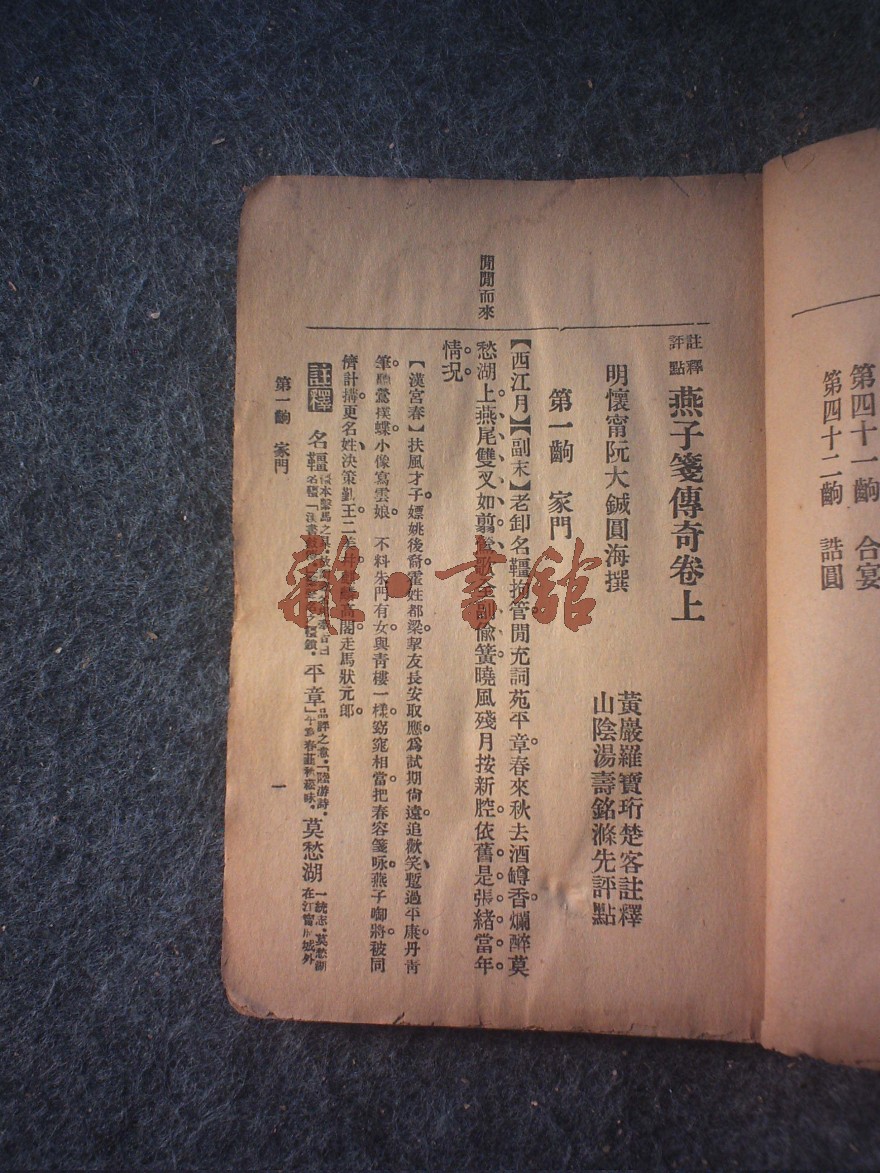 第四十一齣　合宴
第四十二齣　誥圓
註釋評點　燕子箋傳奇卷上
明懷甯阮大鋮圓海撰
黃巖羅寶珩楚客註釋
山陰湯壽銘滌先評點
第一齣　家門
閒閒而來
【西江月】【副末】老卸名韁拘管閒充詞苑平章春來秋去酒罇香爛醉莫
愁湖上燕尾雙叉如翦鶯歌全副偸簧曉風殘月按新腔依舊是張緒當年
情况。
【漢宮春】扶風才子嫖姚後裔霍姓都梁挈友長安取應爲試期尙遠追歡笑蹔過平康丹靑
筆聽鶯撲蝶小像寫雲娘　不料朱門有女與靑樓一樣窈窕相當把春容箋咏燕子啣將被同
儕計搆更名姓決策勤王二美高閣走馬狀元郎。
註釋　名韁　平章　品評之意。「陸游詩。　莫愁湖　一統志。莫愁湖在江甯城外
第一齣　家門
一
雜·書館